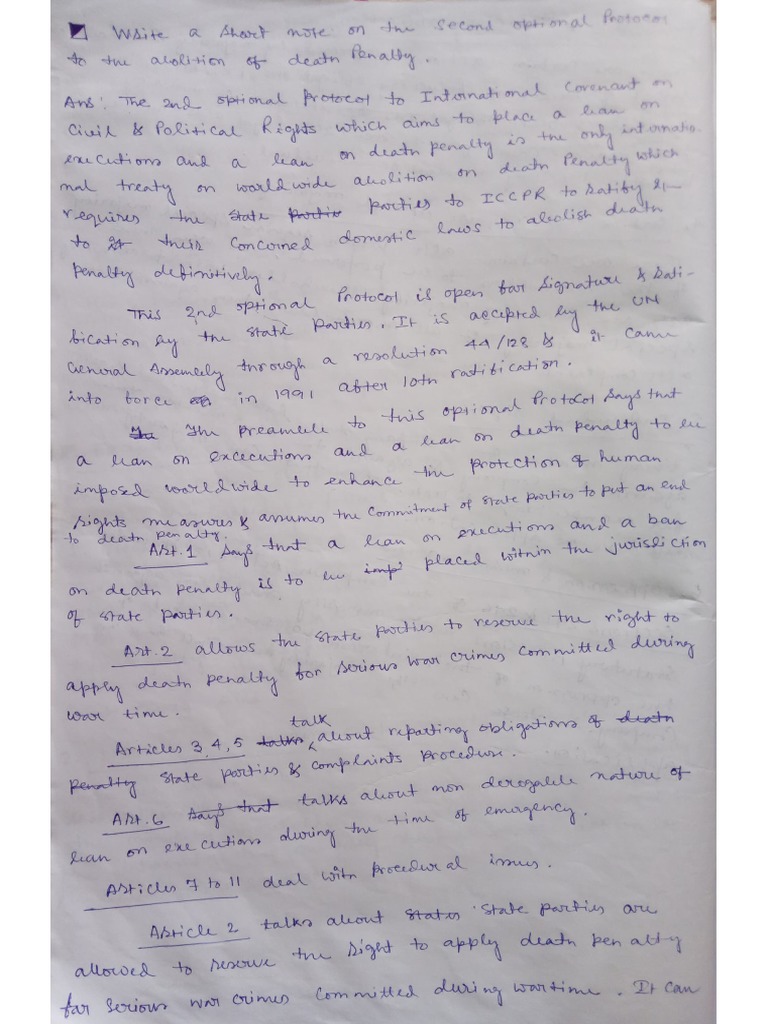 Write a short note on the second optional Protocol
to the abolition of death Penalty.
Ans: The 2nd optional Protocol to International Covenant on
Civil & Political Rights which aims to place a ban on
executions and a ban on death penalty is the only internatio-
nal treaty on worldwide abolition on death Penalty which
requires the state parties to ICCPR to ratify it
to their concerned domestic laws to abolish death
Penalty definitively.
This 2nd optional Protocol is open for signature & rati-
fication by the state Parties. It is accepted by the UN
General Assembly through a resolution 44/128 & it came
into force in 1991 after 10th ratification.
The preamble to this optional Protocol says that
a ban on excecutions and a ban on death penalty to be
imposed worldwide to enhance the protection of human
rights measures & assumes the commitment of state parties to put an end
to death penalty.
Art. 1 says that a ban on executions and a ban
on death penalty is to be placed within the jurisdiction
of state parties.
Art. 2 allows the state parties to reserve the right to
apply death penalty for serious war crimes committed during
war time.
Articles 3, 4, 5 talk about reporting obligations of
state parties & complaints procedure.
Art. 6 talks about non derogable nature of
ban on executions during the time of emagency.
Articles 7 to 11 deal with procedural issues.
Article 2 talks about state parties are
allowed to reserve the right to apply death penalty
for serious war crimes committed during wartime. It can